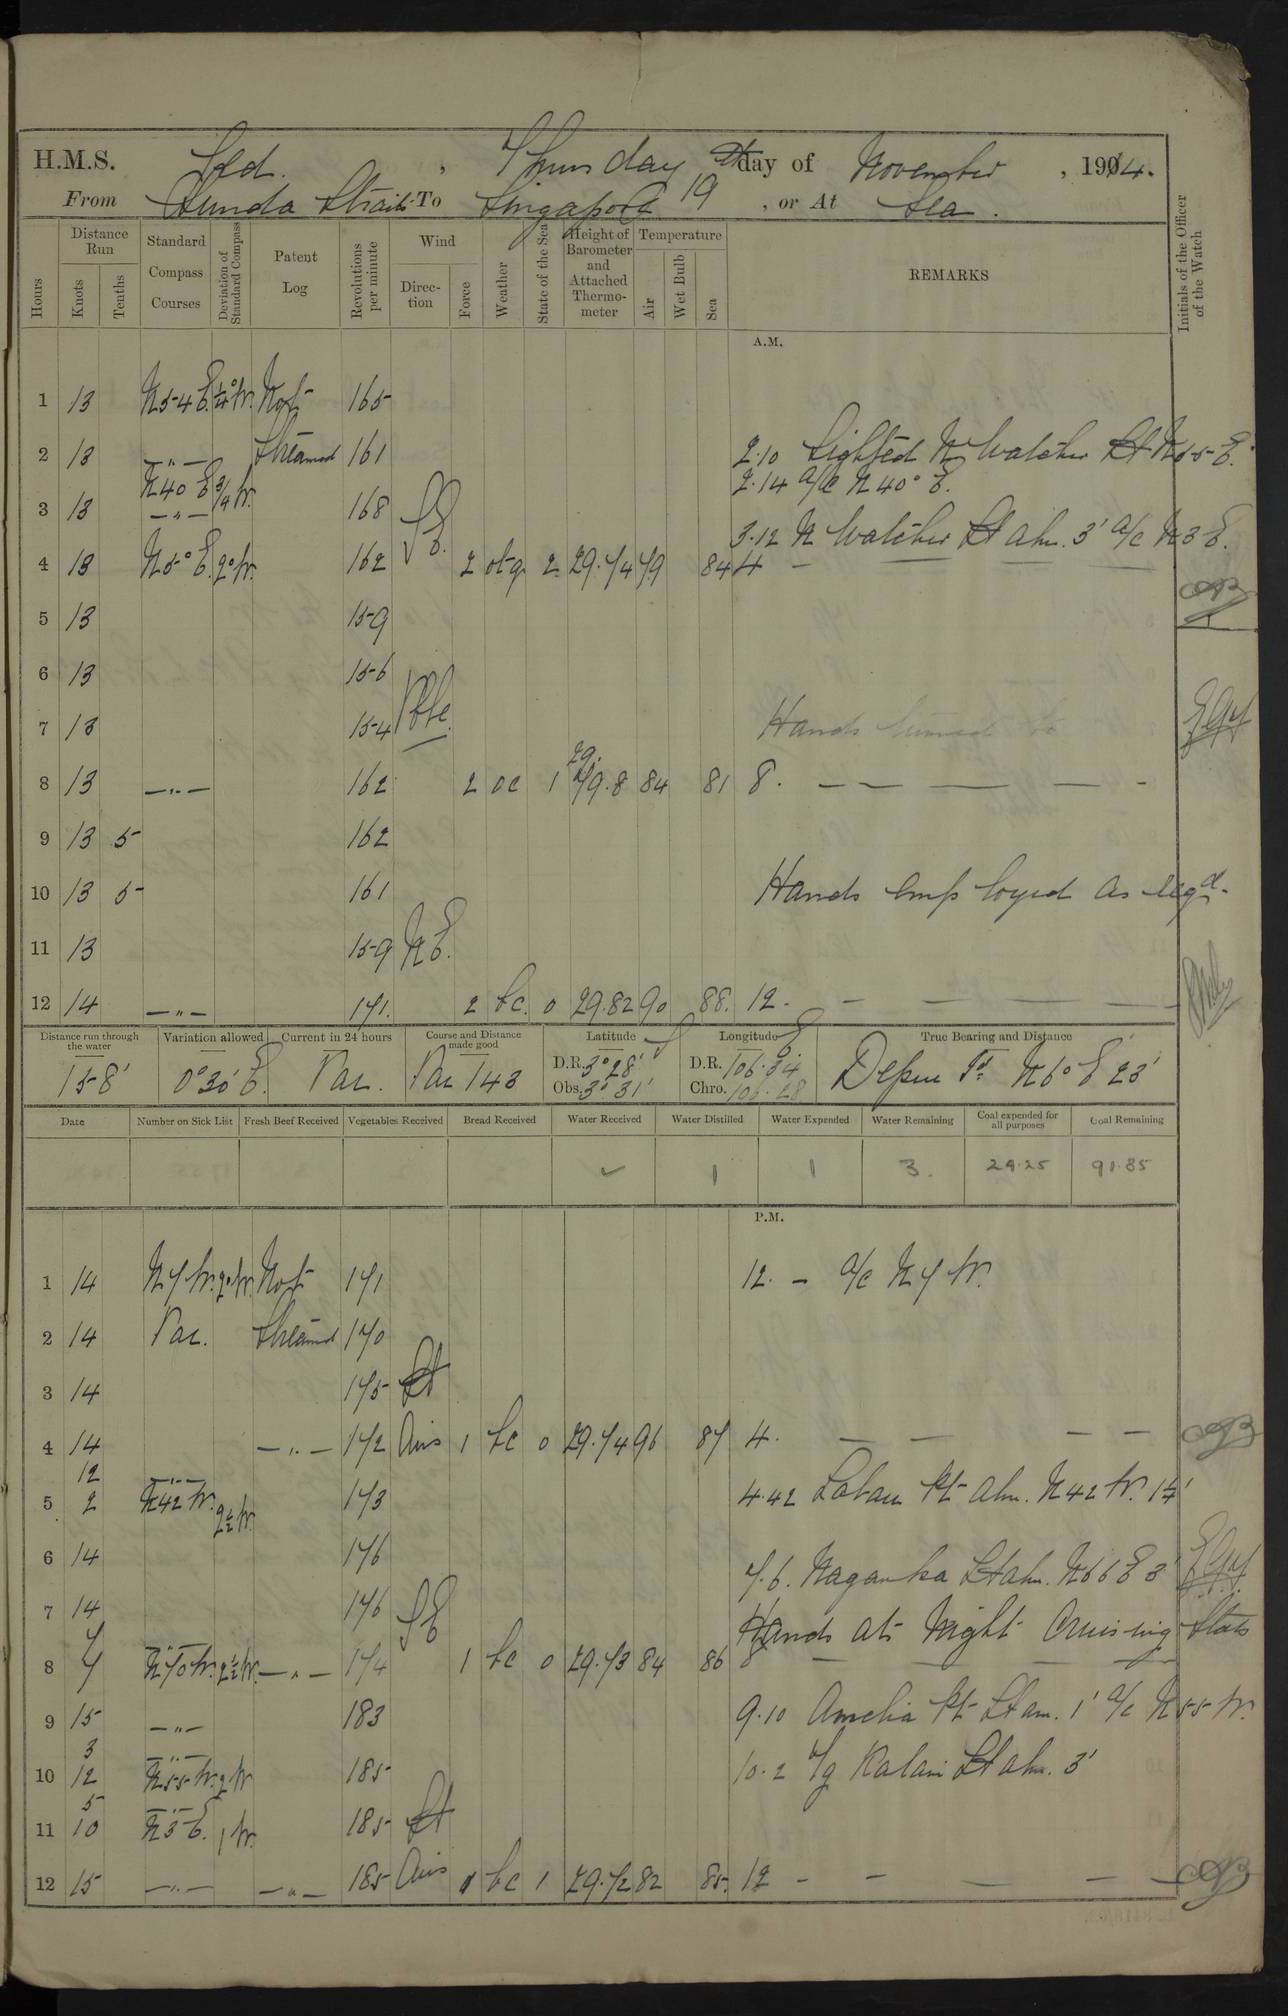 H.M.S. , Thursday day of November , 1914.
From Sunda Straits To Singapore 19 , or At Sea.
Hours Distance Run Knots Tenths Standard Compass Courses Deviation of Standard Compass Patent Log Revolutions per minute Wind Direction Force Weather State of the Sea Height of Barometer and Attached Thermometer Temperature Air Wet Bulb Sea REMARKS Initials of the Officer of the Watch
A.M.
1 13 N54E 1/4° W. Not 165
2 13 —"— Streamed 161 2.10 Sighted N Watcher Lt N55E.
N40E 3/4 W. 2.14 a/c N40°E.
3 13 —"— 168 SE. 3.12 N Watcher Lt abm. 3' a/c N3E.
4 13 N5°E. 2°W. 162 2 2 29.74 79 84 4 —
5 13 159
6 13 156
7 13 154 Vble. Hands turned to
8 13 —"— 162 2 oc 1 29. 79.8 84 81 8. — — — — -
9 13 5 162
10 13 5 161 Hands employed as reqd.
11 13 159 NE.
12 14 —"— 171. 2 bc. 0 29.82 90 88. 12. — — — —
Distance run through the water Variation allowed Current in 24 hours Course and Distance made good Latitude S Longitude E True Bearing and Distance
158' 0°30'E. Var. Var 143 D.R. 3°28' D.R. 106.34 N6°E 23'
Obs. 3°31' Chro. 106.28
Date Number on Sick List Fresh Beef Received Vegetables Received Bread Received Water Received Water Distilled Water Expended Water Remaining Coal expended for all purposes Coal Remaining
✓ 1 1 3. 29.25 91.85
P.M.
1 14 N7W. 2°W. Not 171 12. — a/c N7W.
2 14 Var. Streamed 170
3 14 175 Lt
4 14 —"— 172 Airs 1 bc 0 29.74 96 87 4. — — — —
12 —"—
5 2 N42W. 2½W. 173 4.42 Pt abm. N42W. 1¼'
6 14 176 7.6. Naganka Lt abm. N66E 3'
7 14 176 SE Hands at Night Cruising Stats
7 —"—
8 7 N70W. 2½W. —"— 174 1 bc 0 29.73 84 86 8 — — — —
9 15 —"— 183 9.10 Amelia Pt Lt am. 1' a/c N55W.
3 —"—
10 12 N55W. 2W 185 10.2 Tg Kalian Lt abm. 3'
5 —"—
11 10 N3E. 1W. 185 Lt
12 15 —"— —"— 185 Airs 1 bc 1 29.72 82 85. 12 — — — — —